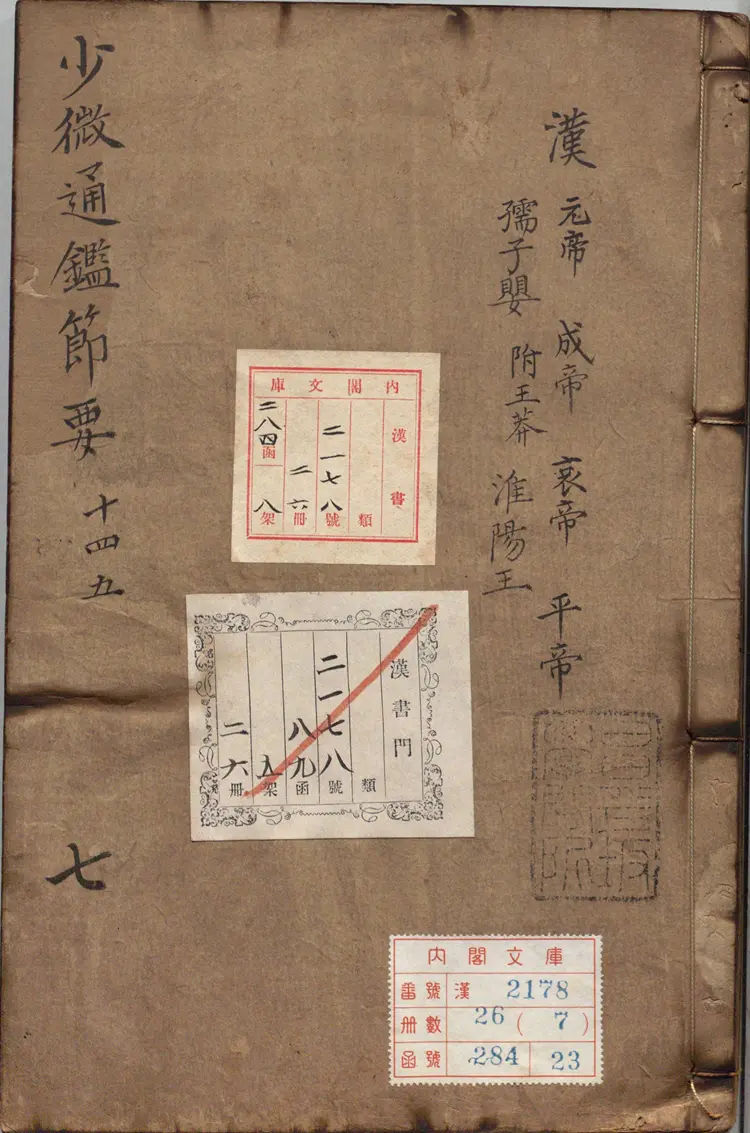 漢 元帝 成帝 哀帝 平帝
孺子嬰 附王莽 淮陽王
少微通鑑節要 十四 五
七
内閣文庫
漢書
類
二一七八號
二六冊
二八四函
八架
漢書門
類
二一七八號
八九函
五架
二六冊
内閣文庫
番號 漢 2178
册數 26 ( 7 )
函號 284 23